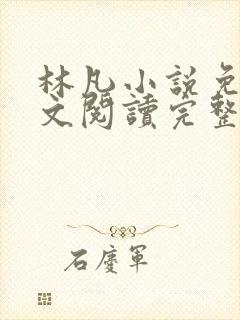 林凡小說免
文閱讀完整
石慶軍